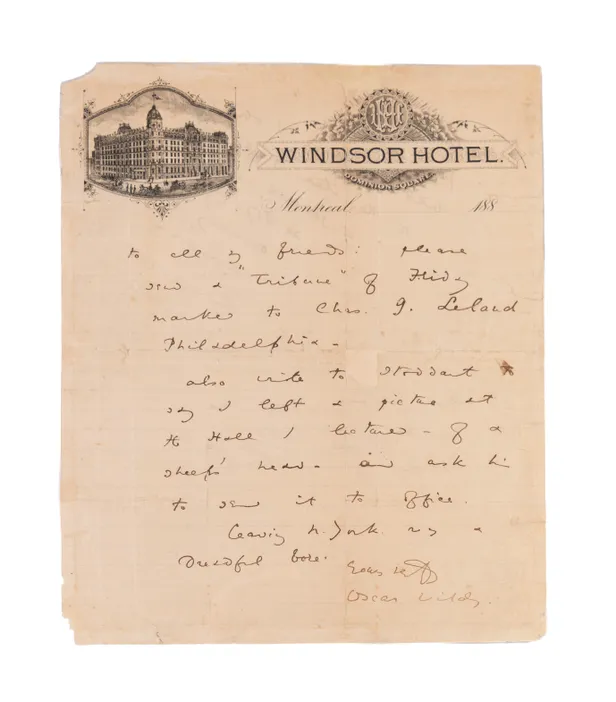 WINDSOR HOTEL.
DOMINION SQUARE
Montreal 188
to all my friends: please
send a "Tribune" of Friday
marked to Chas. G. Leland
Philadelphia -
also write to Stoddart to
say I left a picture at
the Hall I lectured - of a
sheep's head - and ask him
to send it to office.
Leaving N. York was a
Dreadful bore.
Oscar Wilde.